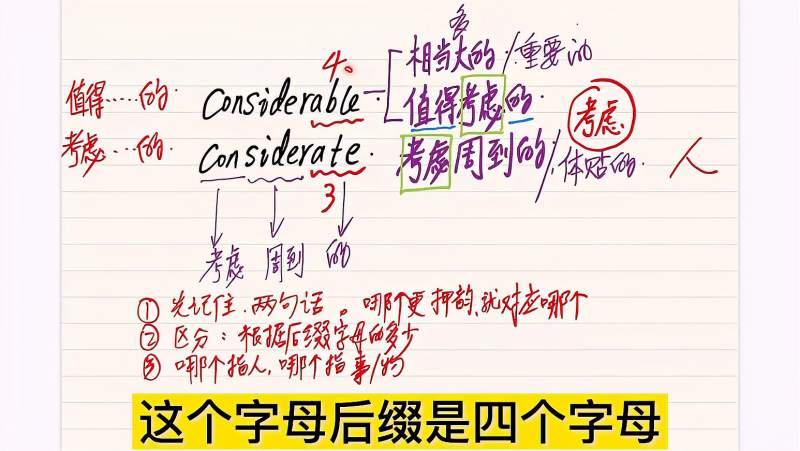 多
4.
相当大的/重要的
值得……的. Considerable 值得考虑的. 考虑
考虑…的. Considerate. 考虑周到的/体贴的. 人
3
考虑 周到 的
① 先记住.两句话。哪个更押韵、就对应哪个
② 区分:根据后缀字母的多少
③ 哪个指人,哪个指事/物
这个字母后缀是四个字母